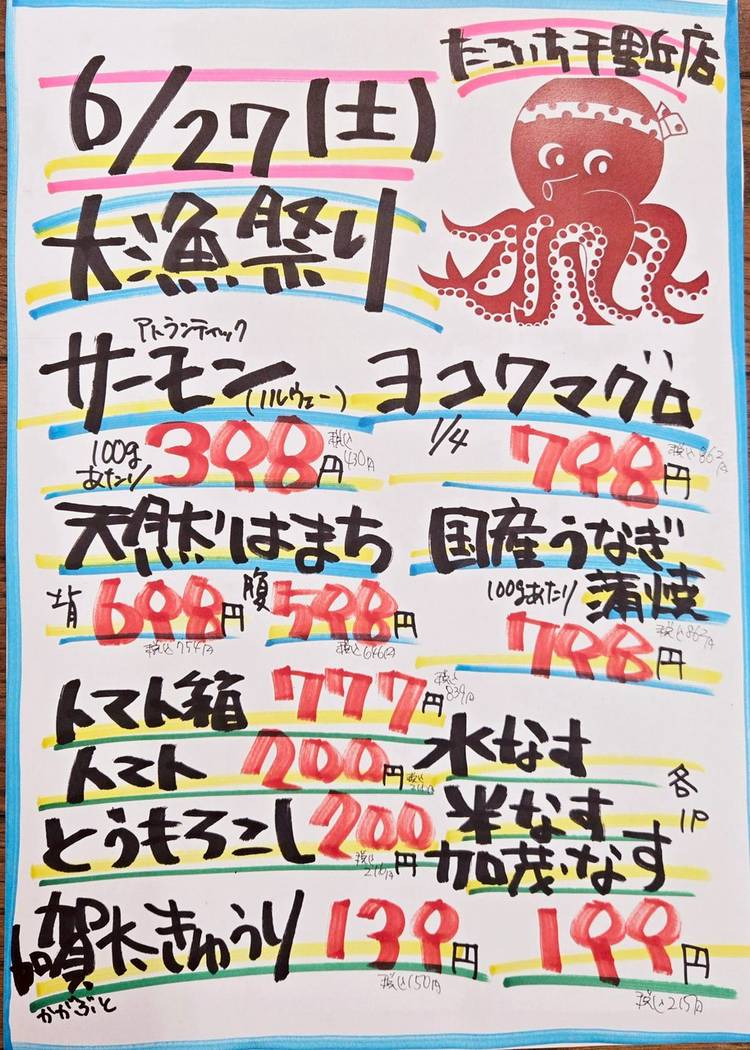 たこいち千里丘店
6/27(土)
大漁祭り
アトランティック
サーモン(ノルウェー)
100gあたり 398円 税込430円
ヨコワマグロ
1/4 798円 税込862円
天然はまち
背 698円 税込754円
腹 598円 税込646円
国産うなぎ
100gあたり 蒲焼
798円 税込862円
トマト箱 777円 税込839円
トマト 200円 税込216円
とうもろこし 200円 税込216円
加賀太きゅうり 139円 税込150円
かがぶと
水なす
米なす
加茂なす
各1P
199円 税込215円